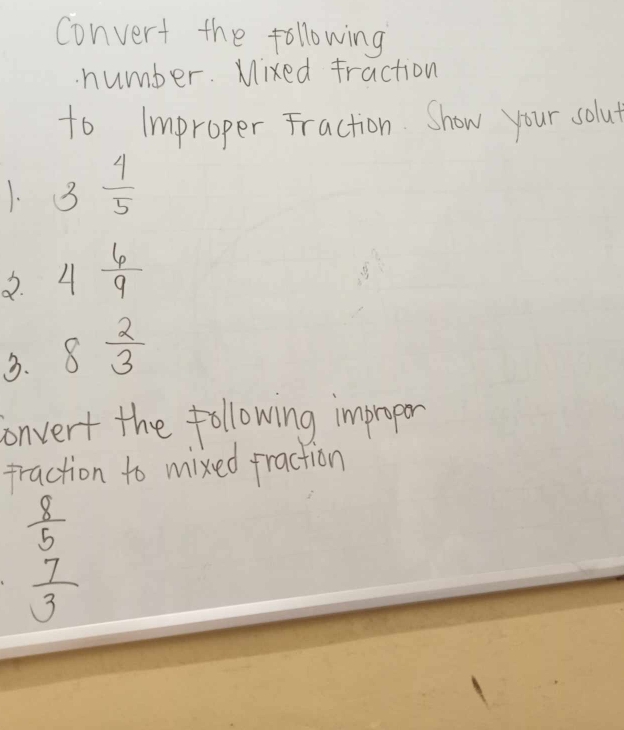 Convert the following
number. Mixed Fraction
to Improper Fraction. Show your solut
1. 3 4/5
2. 4 6/9
3. 8 2/3
onvert the following improper
fraction to mixed fraction
8/5
. 7/3